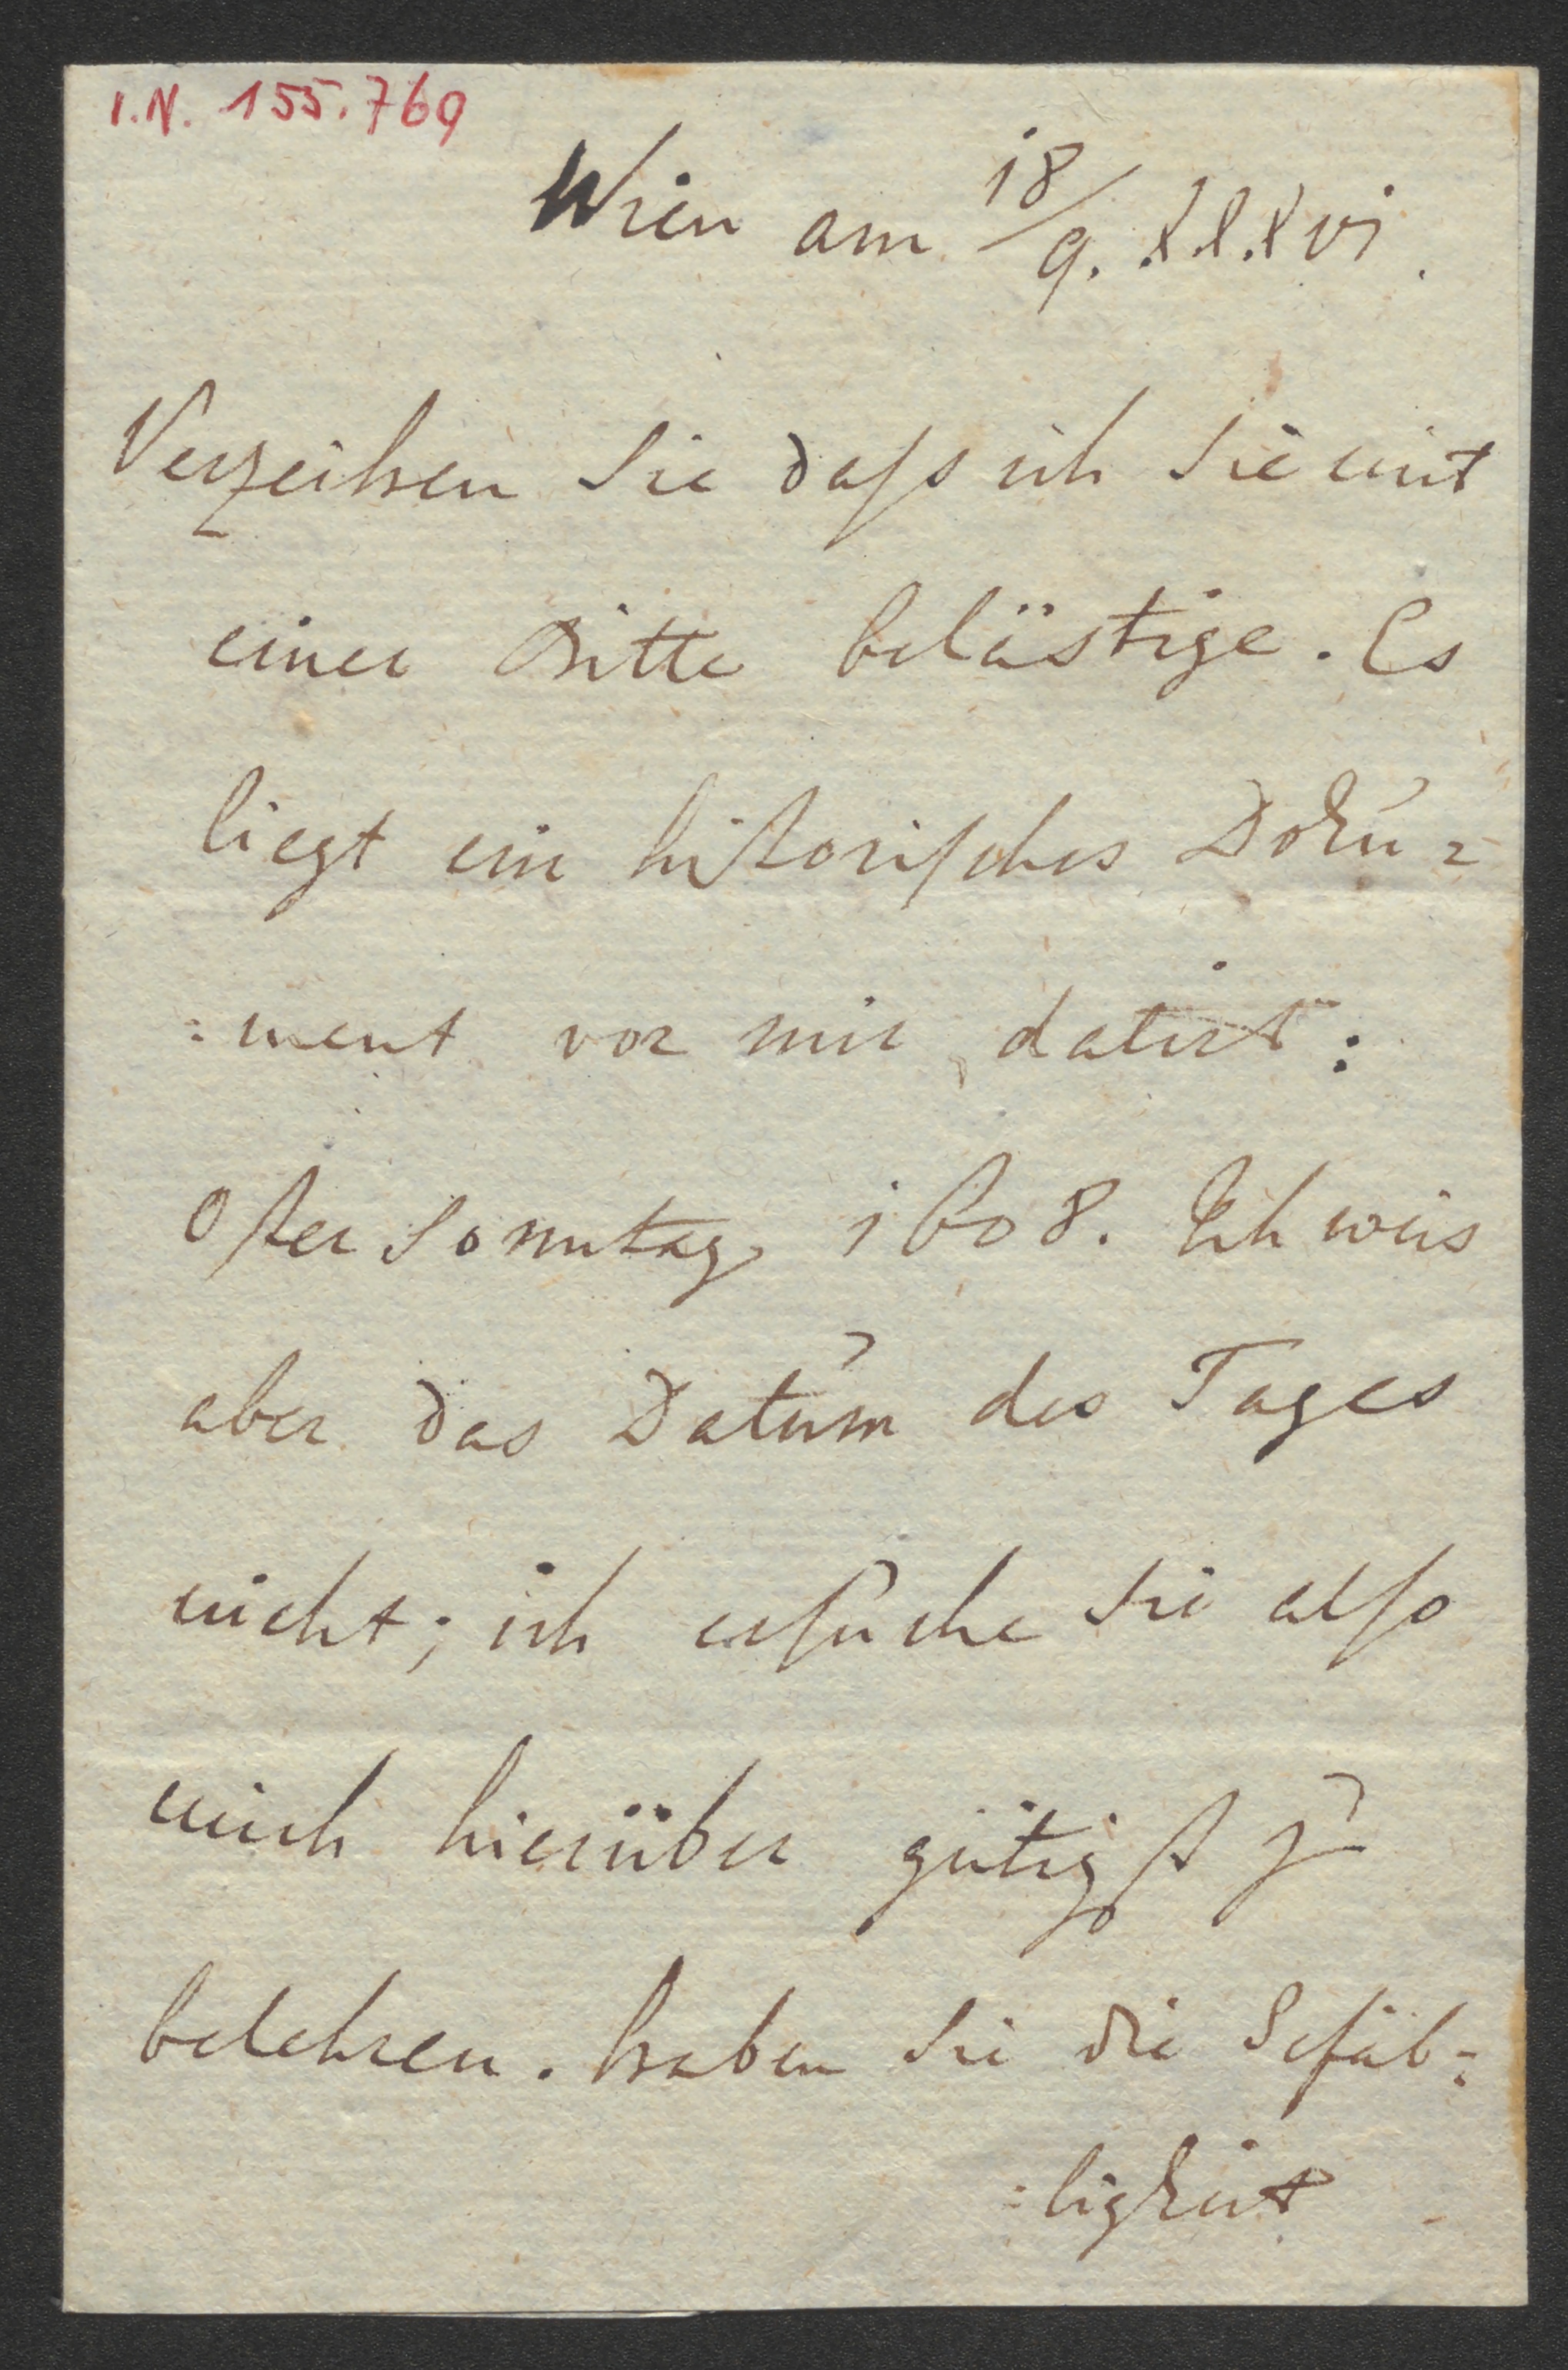 I.N. 155.769
Wien am 18/9. XXXVI.
Verzeihen Sie daſs ich Sie mit
einer Bitte belästige. Es
liegt ein hiſtoriſches Doku=
:ment vor mir, datirt:
Oſter Sonntag 1608. Ich weis
aber das Datum des Tages
nicht; ich erſuche Sie alſo
mich hierüber gütigſt zu
belehren. haben Sie die Gefäl=
:ligkeit